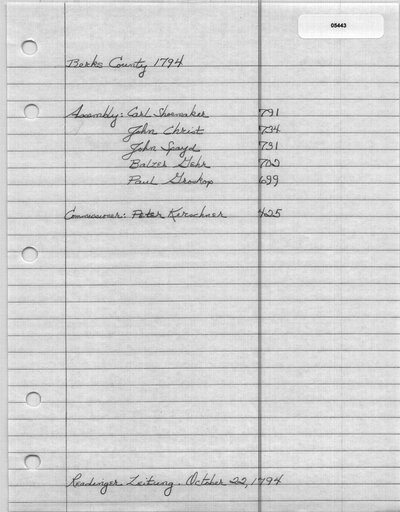 05443
Berks County 1794
Assembly: Carl Shoemaker 791
John Christ 734
John Spayd 731
Balzer Gehr 702
Paul Groskop 699
Commissioner: Peter Kirschner 425
Readinger Zeitung. October 22, 1794